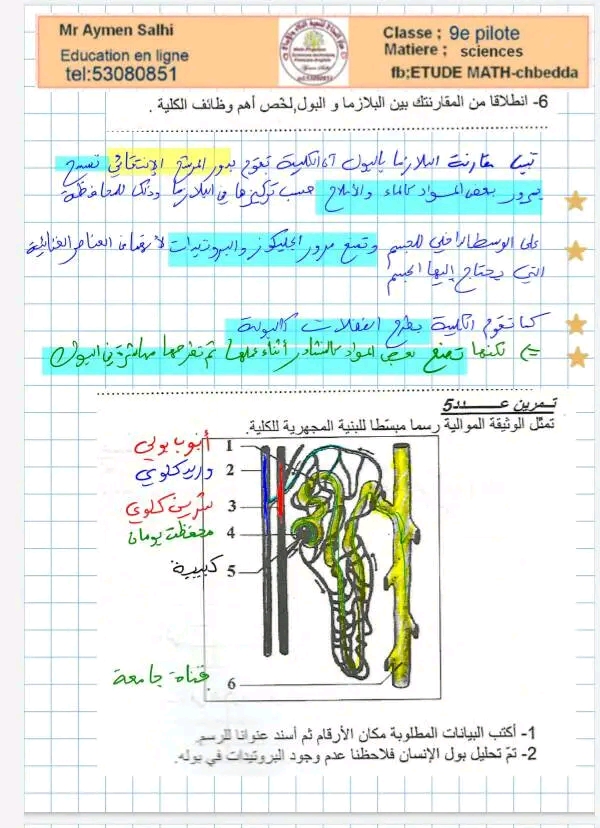 Mr Aymen Salhi
Education en ligne
tel:53080851
Classe ; 9e pilote
Matiere ; sciences
fb;ETUDE MATH-chbedda
6- انطلاقا من المقارنتك بين البلازما و البول,لخّص أهم وظائف الكلية .
تبين مقارنة البلازما بالبول أن الكلية تقوم بدور المرشح الإنتقائي تسمح
بمرور بعض المواد كالماء والأملاح حسب تركيزها في البلازما وذلك للمحافظة
على الوسط الداخلي للجسم وتمنع مرور الجليكوز والبروتيدات لأنهما من العناصر الغذائية
التي يحتاج إليها الجسم
كما تقوم الكلية بطرح الفضلات كالبولة
لكنها تصنع بعض المواد كالنشادر أثناء عملها ثم تطرحها مباشرة في البول
تمرين عـــدد5
تمثّل الوثيقة الموالية رسما مبسّطا للبنية المجهرية للكلية.
أنبوب بولي 1
وريد كلوي 2
شريان كلوي 3
محفظة بومان 4
كبيبة 5
قناة جامعة 6
1- أكتب البيانات المطلوبة مكان الأرقام ثم أسند عنوانا للرسم.
2- تمّ تحليل بول الإنسان فلاحظنا عدم وجود البروتيدات في بوله.